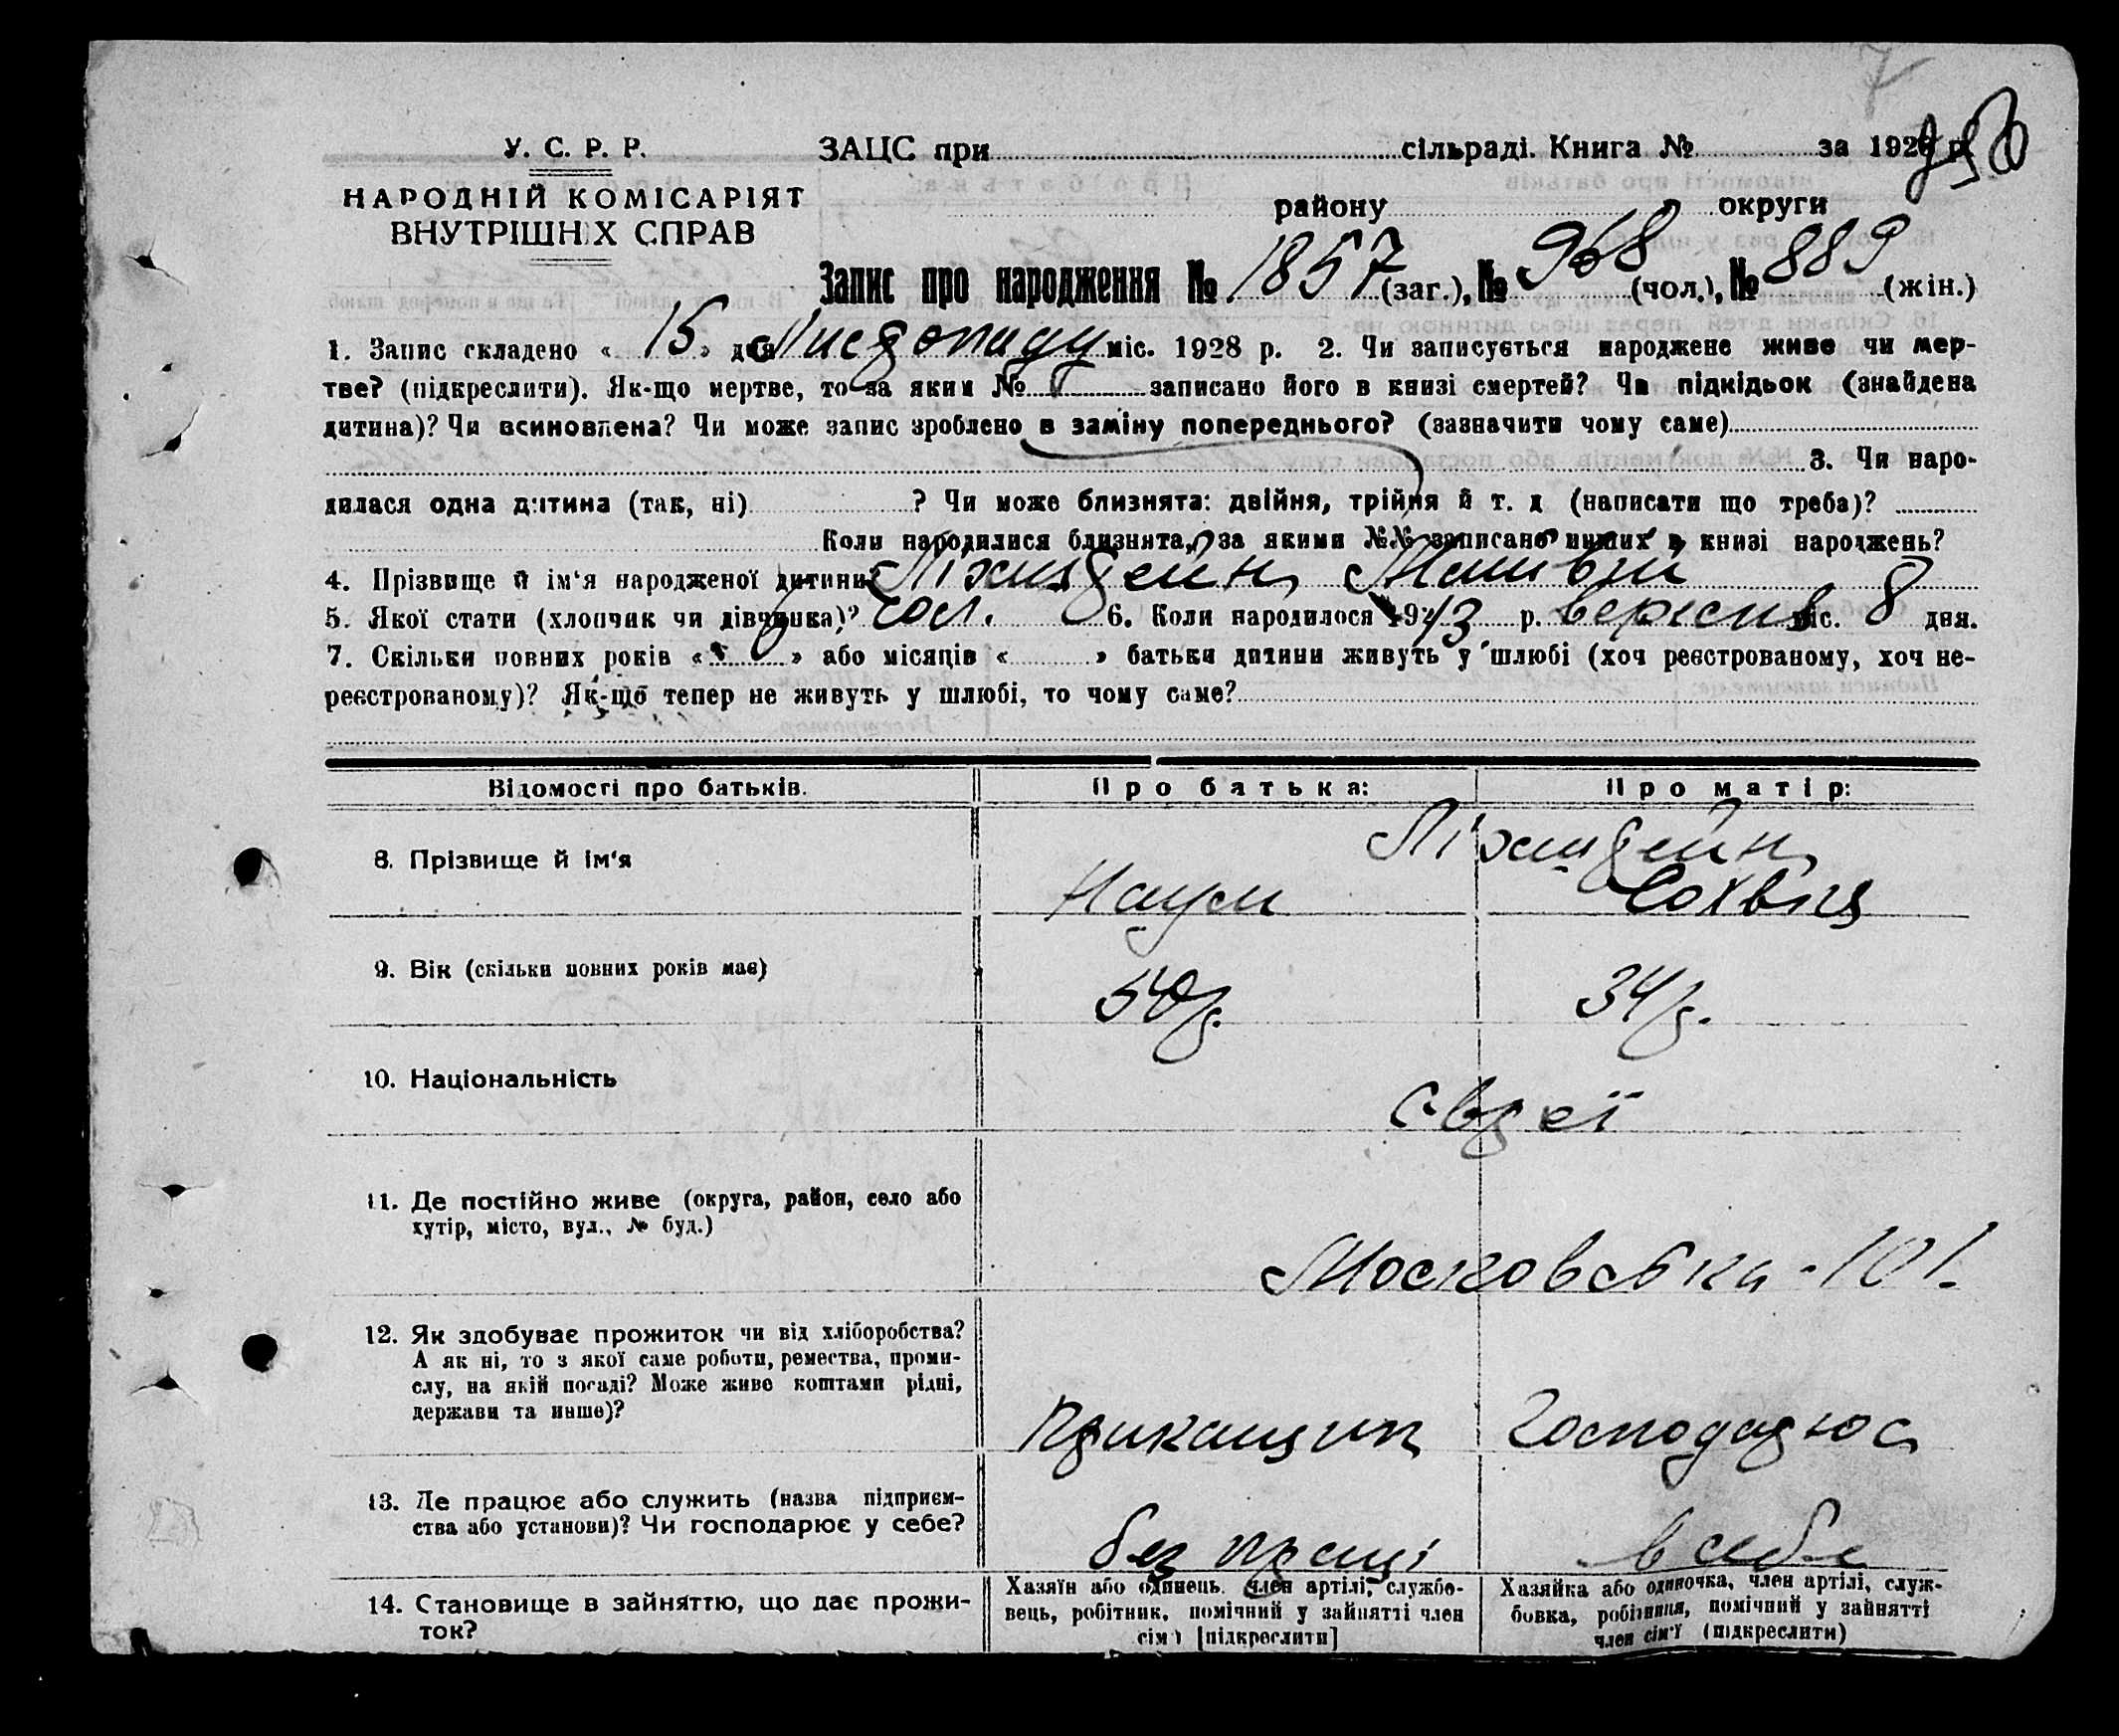 7
У. С. Р. Р.
ЗАЦС при сільраді. Книга № за 1928 р.
НАРОДНІЙ КОМІСАРІЯТ
ВНУТРІШНІХ СПРАВ
району округи
Запис про народження № 1857 (заг.), № 968 (чол.), № 889 (жін.)
1. Запис складено « 15 » дня Листопаду міс. 1928 р. 2. Чи записується народжене живе чи мер-
тве? (підкреслити). Як-що мертве, то за яким № записано його в книзі смертей? Чи підкідьок (знайдена
дитина)? Чи всиновлена? Чи може запис зроблено в заміну попереднього? (зазначити чому саме)
3. Чи наро-
дилася одна дитина (так, ні) ? Чи може близнята: двійня, трійня й т. д (написати що треба)?
Коли народилися близнята, за якими №№ записано инших в книзі народжень?
4. Прізвище й ім'я народженої дитини? Ліхтдейн
5. Якої стати (хлопчик чи дівчинка)? чол. 6. Коли народилося 1913 р. вересня міс. 8 дня.
7. Скільки повних років « » або місяців « » батьки дитини живуть у шлюбі (хоч реєстрованому, хоч не-
реєстрованому)? Як-що тепер не живуть у шлюбі, то чому саме?
Відомості про батьків. Про батька: Про матір:
8. Прізвище й ім'я
Наум
9. Вік (скільки повних років має) 50 р. 34 р.
10. Національність
євреї
11. Де постійно живе (округа, район, село або
хутір, місто, вул., № буд.)
Московська - 101.
12. Як здобуває прожиток чи від хліборобства?
А як ні, то з якої саме роботи, ремества, проми-
слу, на якій посаді? Може живе коштами рідні,
держави та инше)?
Прикащик Господарює
13. Де працює або служить (назва підприєм-
ства або установи)? Чи господарює у себе?
без праці в себе
14. Становище в зайняттю, що дає прожи-
ток?
Хазяїн або одинець, член артілі, службо-
вець, робітник, помічний у зайнятті член
сім'ї [підкреслити]
Хазяйка або одиночка, член артілі, служ-
бовка, робітниця, помічний у зайнятті
член сім'ї (підкреслити)